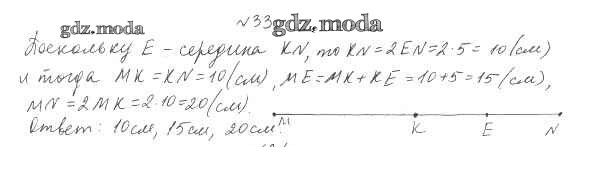 №33
gdz.moda gdz.moda
Поскольку E - середина KN, то KN=2EN=2·5=10(см)
и тогда MK=KN=10(см), ME=MK+KE=10+5=15(см),
MN=2MK=2·10=20(см).
Ответ: 10см, 15см, 20см.
M K E N